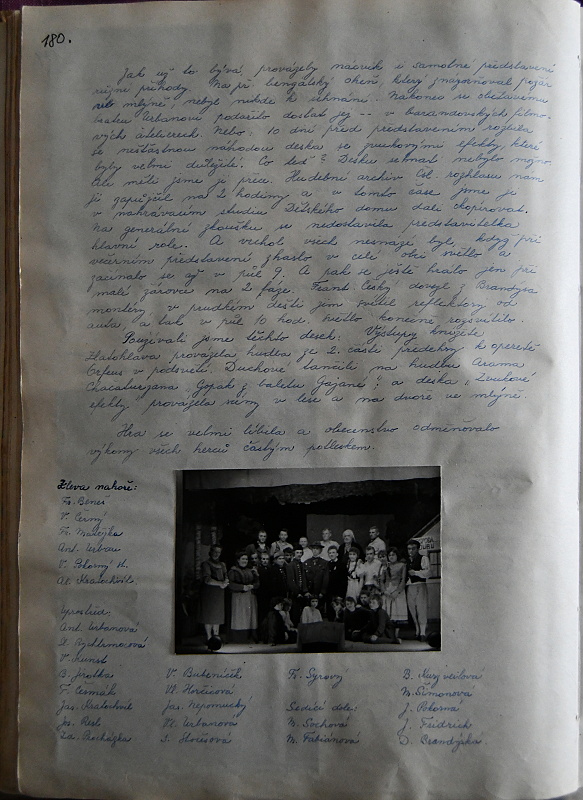 180.
Jak už to bývá, provázely nácvik i samotné představení
různé příhody. Na př. bengálský oheň, který znázorňoval požár
ve mlýně, nebyl nikde k sehnání. Nakonec se obětavému
bratru Urbanovi podařilo dostat jej -- v barandovských filmo-
vých ateliérech. Nebo: 10 dní před představením rozbila
se nešťastnou náhodou deska se zvukovými efekty, které
byly velmi důležité. Co teď? Desku sehnat nebylo možno.
Ale měli jsme ji přece. Hudební archiv Čsl. rozhlasu nám
ji zapůjčil na 2 hodiny a v tomto čase jsme je
v nahrávacím studiu Dětského domu dali zkopírovat.
Na generální zkoušku se nedostavila představitelka
hlavní role. A vrchol všech nesnází byl, když při
večerním představení zhaslo v celé obci světlo a
začínalo se až v půl 9. A pak se ještě hrálo jen při
malé žárovce na 2 fáze. Frant. Český dovezl z Brandýsa
montéry, v prudkém dešti jim svítil reflektory od
auta, a tak v půl 10 hod. světlo konečně rozsvítilo.
Používali jsme těchto desek: Výstupy knížete
Zlatohlava provázela hudba ze 2. části předehry k operetě
Orfeus v podsvětí. Duchové tančili na hudbu Arama
Chačaturjana "Gopak z baletu Gajané" a deska "Zvukové
efekty" provázela scény v lese a na dvoře ve mlýně.
Hra se velmi líbila a obecenstvo odměňovalo
výkony všech herců častým potleskem.
Zleva nahoře:
Fr. Beneš
V. Černý
Fr. Matějka
Ant. Urban
V. Pokorný st.
Al. Kratochvíl
Uprostřed:
Ant. Urbanová
A. Rychtmocová
V. Kunst
B. Jirotka
F. Čermák
Jar. Kratochvíl
Jos. Resl
Za. Procházka
V. Bubeníček
Vl. Horčicová
Jar. Nepomucký
Vl. Urbanová
S. Horčisová
Fr. Syrový
Sedící dole:
M. Sochová
M. Fabiánová
B. Kurzveilová
M. Šimonova
J. Pokorná
J. Feidrich
D. Brandýská